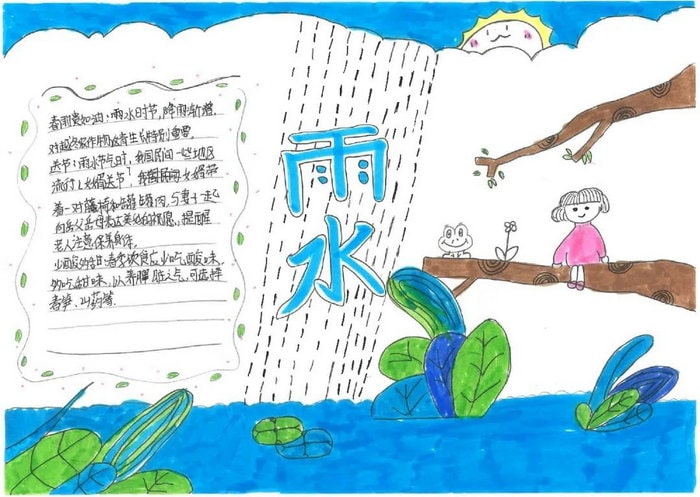 春雨贵如油：雨水时节，降雨渐增，
对越冬农作物返青生长特别重要。
送节：雨水节气时，我国民间一些地区
流行《女婿送节》，我国民间女婿带
着一对藤椅和罐罐肉，与妻子一起
向岳父岳母表达美好的祝愿，提醒
老人注意保养身体。
少酸多甜：春季饮食应少吃酸味，
多吃甜味，以养脾脏之气，可选择
春笋、山药等。
雨
水